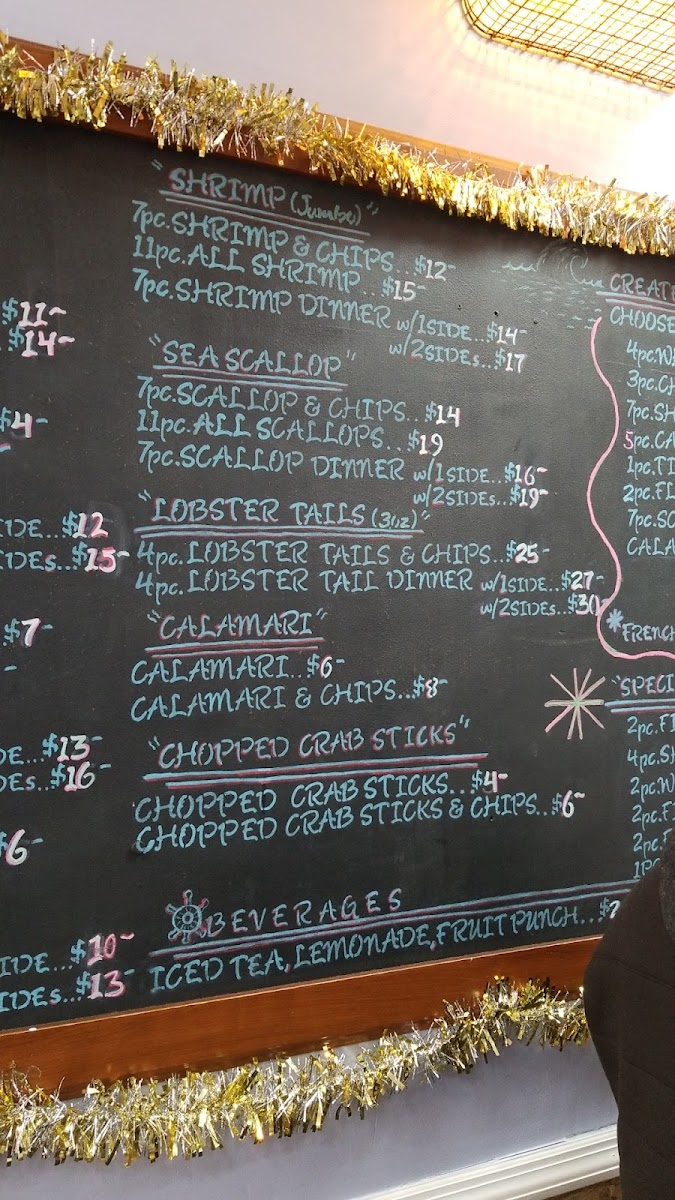 $11-
$14-
$4-
IDE...$12
IDEs...$15-
$7-
DE...$13-
DEs...$16-
$6-
IDE...$10-
IDEs...$13-
"SHRIMP (Jumbo)"
7pc.SHRIMP & CHIPS...$12-
11pc.ALL SHRIMP...$15-
7pc.SHRIMP DINNER w/1SIDE...$14-
w/2SIDEs...$17
"SEA SCALLOP"
7pc.SCALLOP & CHIPS...$14
11pc.ALL SCALLOPS...$19
7pc.SCALLOP DINNER w/1SIDE...$16-
w/2SIDEs...$19-
"LOBSTER TAILS (3oz)"
4pc.LOBSTER TAILS & CHIPS...$25-
4pc.LOBSTER TAIL DINNER w/1SIDE...$27-
w/2SIDEs...$30-
"CALAMARI"
CALAMARI...$6-
CALAMARI & CHIPS...$8-
"CHOPPED CRAB STICKS"
CHOPPED CRAB STICKS...$4-
CHOPPED CRAB STICKS & CHIPS...$6-
BEVERAGES
ICED TEA, LEMONADE, FRUIT PUNCH...$2
CREATE
CHOOSE
4pc.W
3pc.CH
7pc.SH
5pc.CA
1pc.TI
2pc.FL
7pc.SC
CALA
*FRENCH
"SPECI
2pc.FI
4pc.SH
2pc.W
2pc.FI
2pc.F
1PC